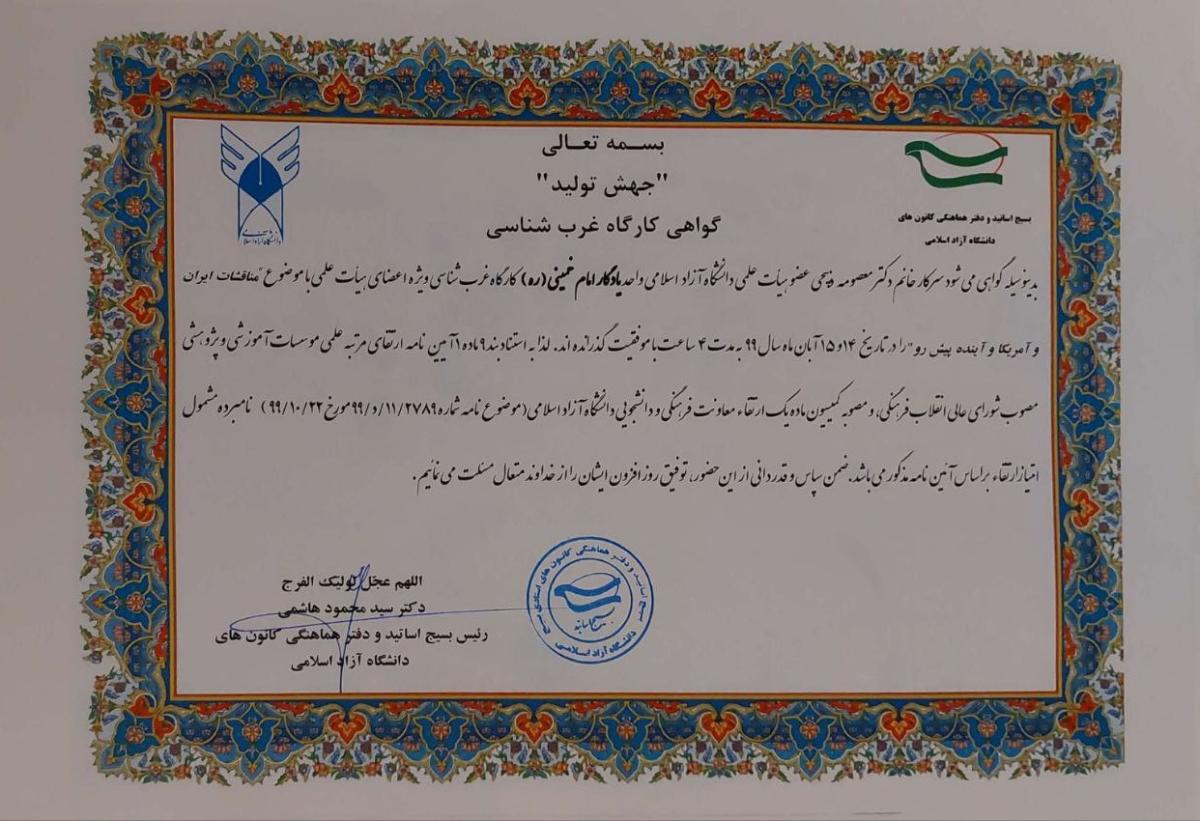 بسمه تعالی
"جهش تولید"
گواهی کارگاه غرب شناسی
بسیج اساتید و دفتر هماهنگی کانون های
دانشگاه آزاد اسلامی
دانشگاه آزاد اسلامی
بدینوسیله گواهی می شود سرکار خانم دکتر معصومه ذبیحی عضو هیأت علمی دانشگاه آزاد اسلامی واحد یادگار امام خمینی (ره) کارگاه غرب شناسی ویژه اعضای هیأت علمی با موضوع "مناقشات ایران
و آمریکا و آینده پیش رو" را در تاریخ ۱۴ و ۱۵ آبان ماه سال ۹۹ به مدت ۴ ساعت با موفقیت گذرانده اند. لذا به استناد بند ۹ ماده ۱ آیین نامه ارتقای مرتبه علمی موسسات آموزشی و پژوهشی
مصوب شورای عالی انقلاب فرهنگی، و مصوبه کمیسیون ماده یک ارتقاء معاونت فرهنگی و دانشجویی دانشگاه آزاد اسلامی (موضوع نامه شماره ۱۱/۲۷۸۹/د/۹۹ مورخ ۹۹/۱۰/۲۲) نامبرده مشمول
امتیاز ارتقاء براساس آئین نامه مذکور می باشد. ضمن سپاس و قدردانی از این حضور، توفیق روز افزون ایشان را از خداوند متعال مسئلت می نمائیم.
اللهم عجل لولیک الفرج
دکتر سید محمود هاشمی
رئیس بسیج اساتید و دفتر هماهنگی کانون های
دانشگاه آزاد اسلامی
بسیج اساتید و دفتر هماهنگی کانون های استادی بسیج
دانشگاه آزاد اسلامی
بسیج اساتید